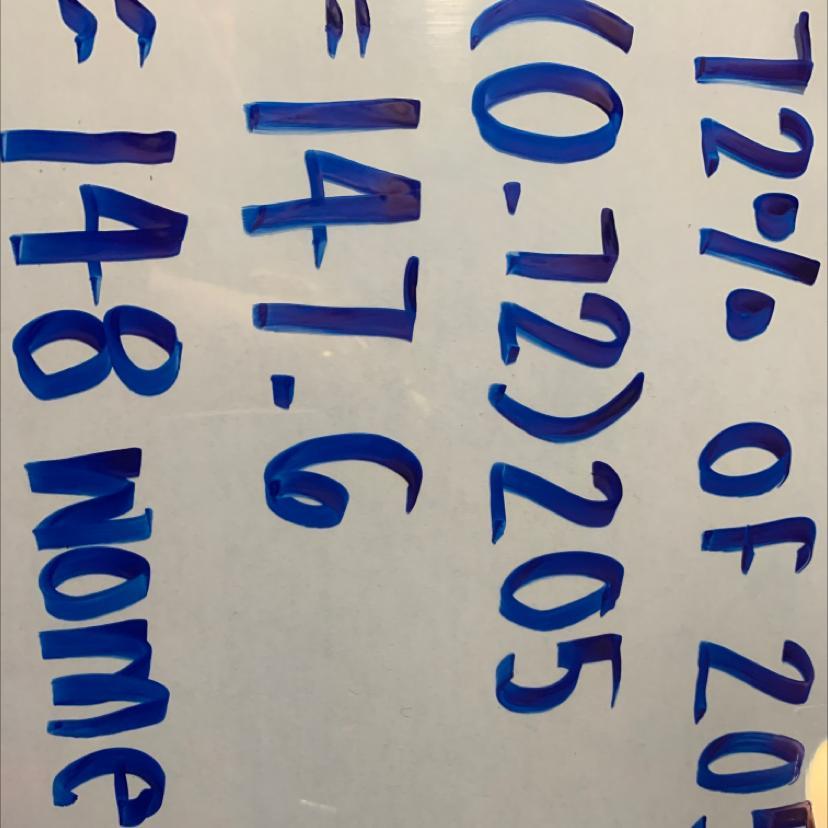 72% of 205
(0.72)205
= 147.6
≈ 148 wome